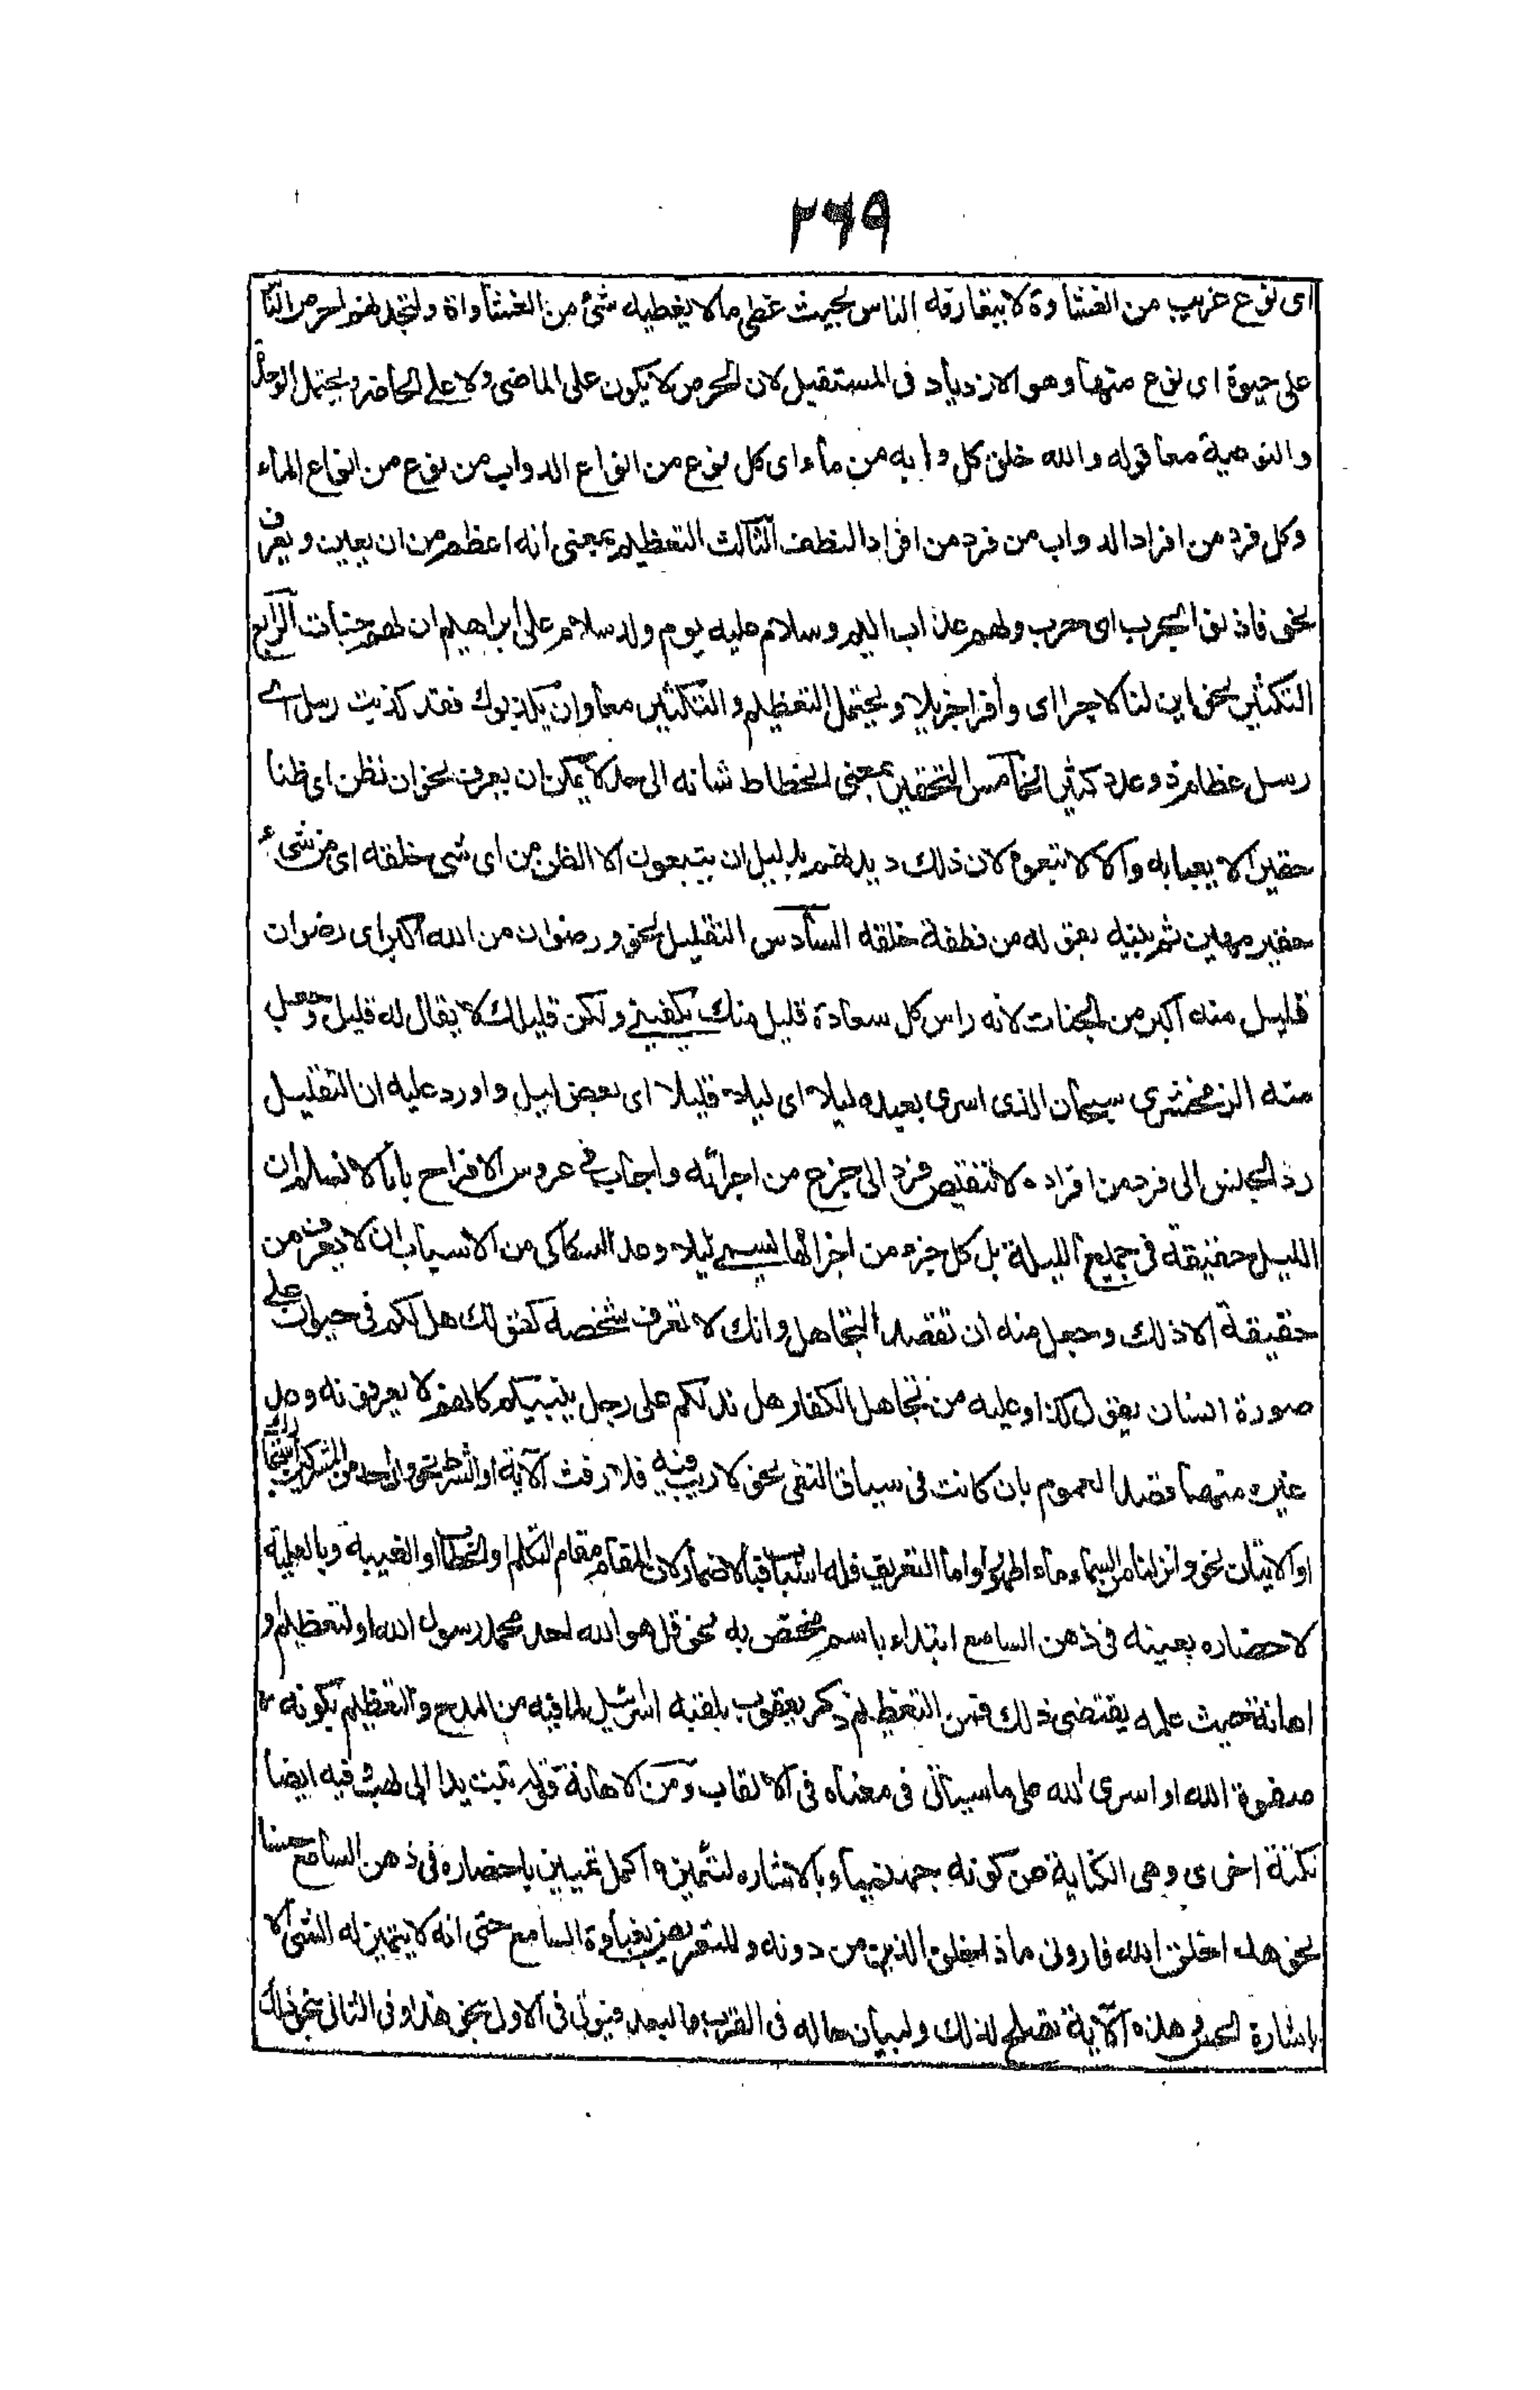 ٢٦٩
اى نوع غريب من الغشاوة لا يتعارفه الناس بحيث غطى ما لا يغطيه شئ من الغشاواة ولتجدنهم احرص الناس
على حيوة اى نوع منها وهو الازدياد فى المستقبل لان الحرص لا يكون على الماضى ولا على الحاضر ويحتمل الوحدة
والنوعية معا قوله والله خلق كل دابه من ماء اى كل نوع من انواع الدواب من نوع من انواع الماء
وكل فرد من افراد الدواب من فرد من افراد النطف الثالث التعظيم بمعنى انه اعظم من ان يعين ويعرف
نحو فاذنوا بحرب اى حرب ولهم عذاب اليم وسلام عليه يوم ولد سلام على ابراهيم ان لهم جنات الرابع
التكثير نحو اين لنا لاجرا اى وافرا جزيلا ويحتمل التعظيم والتكثير معا وان يكذبوك فقد كذبت رسل اى
رسل عظام ذو عدد كثير الخامس التحقير بمعنى انحطاط شانه الى حد لا يمكن ان يعرف نحو ان نظن اى ظنا
حقيرا لا يعبا به والا لا تبعوه لان ذلك ديدنهم بدليل ان يتبعون الا الظن من اى شى خلقه اى من شئ
حقير مهين ثم بينه بقوله من نطفة خلقه السادس التقليل نحو ورضوان من الله اكبر اى رضوان
قليل منه اكبر من الجنات لانه راس كل سعادة قليل منك يكفينى ولكن قليلك لا يقال له قليل وجعل
منه الزمخشرى سبحان الذى اسرى بعبده ليلا اى ليلا قليلا اى بعض ليل واورد عليه ان التقليل
رد الجنس الى فرد من افراده لا تنقيص فرد الى جزء من اجزائه واجاب فى عروس الافراح بانا لا نسلم ان
الليل حقيقة فى جميع الليلة بل كل جزء من اجزائها يسمى ليلا وعد السكاكى من الاسباب ان لا يعرف من
حقيقة الا ذلك وجعل منه ان تقصد التجاهل وانك لا تعرف شخصه كقولك هل لكم فى حيوان على
صورة انسان يقول كذا وعليه من تجاهل الكفار هل ندلكم على رجل ينبيكم كانهم لا يعرفونه وعد
غيره منها قصد العموم بان كانت فى سياق النفى نحو لا ريب فيه فلا رفث الآية او الشرط نحو وان احد من المشركين استجارك
او الامتنان نحو وانزلنا من السماء ماء طهورا واما التعريف فله اسباب فبالاضمار لان المقام مقام التكلم او الخطاب او الغيبة وبالعلمية
لاحضاره بعينه فى ذهن السامع ابتداء باسم مختص به نحو قل هو الله احد محمد رسول الله او لتعظيم او
اهانة حيث علمه يقتضى ذلك فمن التعظيم ذكر يعقوب بلقبه اسرئيل لما فيه من المدح والتعظيم بكونه
صفوة الله او اسرى الله على ما سياتى فى معناه فى الالقاب ومن الاهانة قوله تبت يدا ابى لهب وفيه ايضا
نكتة اخرى وهى الكناية عن كونه جهنميا وبالاشاره لتميزه اكمل تمييز باحضاره فى ذهن السامع حسا
نحو هذا خلق الله فارونى ماذا خلق الذين من دونه وللتعريض بغباوة السامع حتى انه لا يتميز له الشئ الا
باشارة الحس وهذه الآية تصلح لذلك ولبيان حاله فى القرب والبعد فيوتى فى الاول بنحو هذا وفى الثانى بنحو ذلك